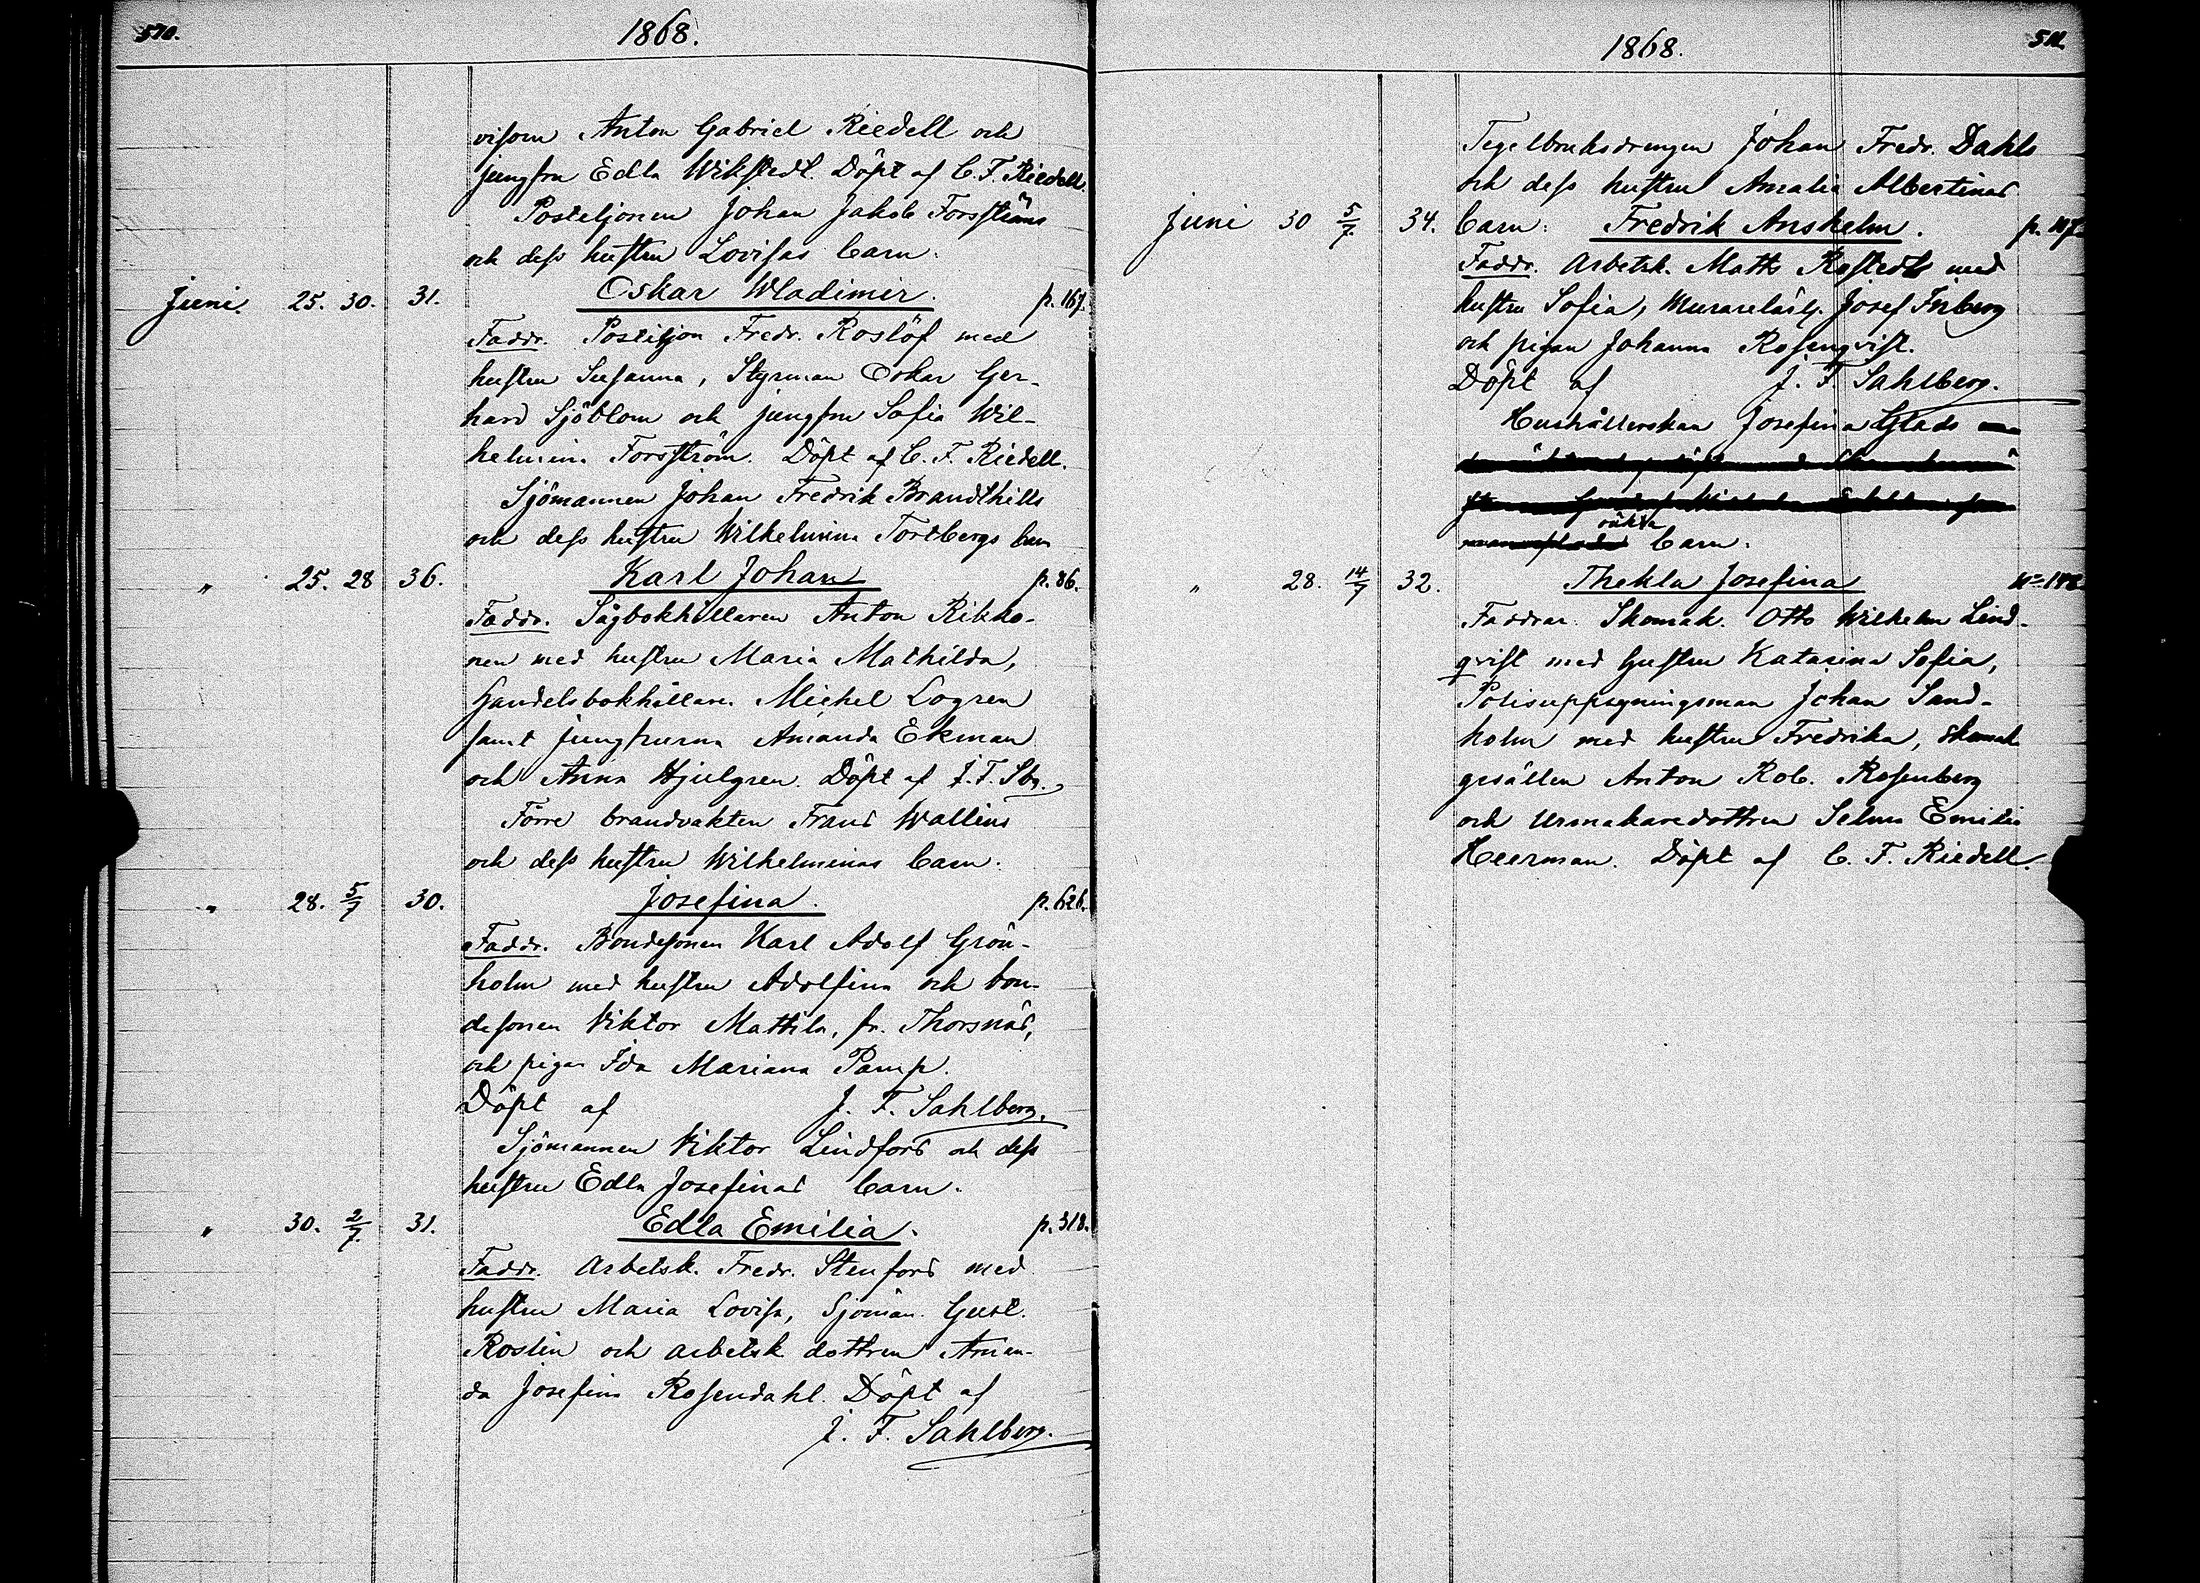 570.
1868.
visorn Anton Gabriel Riedell och
jungfru Edla Wikstedt. Döpt af C. F. Riedell.
Posteljonen Johan Jakob Forsströms
och dess hustru Lovisas barn.
Juni. 25. 30. 31. Oskar Wladimir. p. 167.
Faddr. Postiljon Fredr. Roslöf med
hustru Susanna, Styrman Oskar Ger-
hard Sjöblom och jungfru Sofia Wil-
helmina Forsström. Döpt af C. F. Riedell.
Sjömannen Johan Fredrik Brandthills
och dess hustru Wilhelmina Tordbergs barn
" 25. 28 36. Karl Johan p. 86.
Faddr. Sågbokhållaren Anton Rikko-
nen med hustru Maria Mathilda,
Handelsbokhållare Michel Logren
samt jungfrurna Amanda Ekman
och Anna Hjulgren. Döpt af J. F. Sbg.
Förre brandvakten Frans Wallins
och dess hustru Wilhelminas barn.
" 28. 5/7 30. Josefina. p. 626.
Faddr. Bondesonen Karl Adolf Grön-
holm med hustru Adolfina och bon-
desonen Viktor Mattila, fr. Thorsnäs,
och pigan Ida Mariana Pamp.
Döpt af J. F. Sahlberg.
Sjömannen Viktor Lindfors och dess
hustru Edla Josefinas barn.
" 30. 2/7. 31. Edla Emilia. p. 318.
Faddr. Arbetsk. Fredr. Stenfors med
hustru Maria Lovisa, Sjöman Gust.
Roslin och arbetsk. dottren Aman-
da Josefina Rosendahl. Döpt af
J. F. Sahlberg.
1868.
511.
Tegelbruksdrengen Johan Fredr. Dahls
och dess hustru Amalia Albertinas
Juni 30 5/7. 34. barn: Fredrik Anshelm. p. 107.
Faddr. Arbetsk. Matts Rostedt med
hustru Sofia, Murarelärl. Josef Friberg
och pigan Johanna Rosenqvist.
Döpt af J. F. Sahlberg.
Hushållerskan Josefina Glads
oäkta
barn.
" 28. 14/7 32. Thekla Josefina
Faddrar. Skomak. Otto Wilhelm Lind-
qvist med hustru Katarina Sofia,
Polisuppsyningsman Johan Sand-
holm med hustru Fredrika, Skomak.
gesällen Anton Rob. Rosenberg
och Urmakaredottren Selma Emilia
Heerman. Döpt af C. F. Riedell.